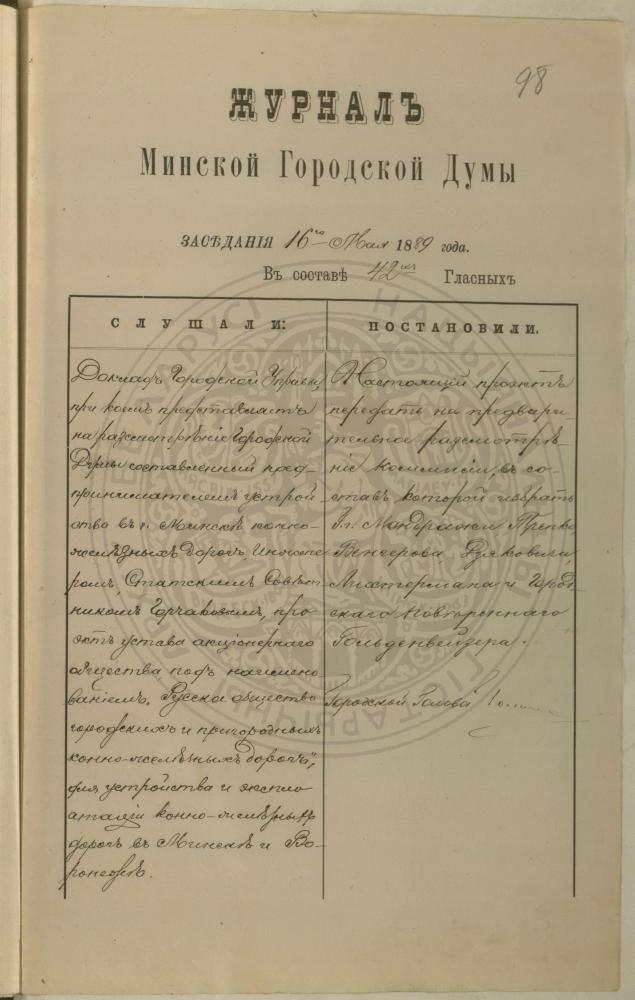 98
ЖУРНАЛЪ
Минской Городской Думы
ЗАСѢДАНІЯ 16го Мая 1889 года.
Въ составѣ 42хъ Гласныхъ
СЛУШАЛИ:
Докладъ Городской Управы,
при коемъ представляетъ
на разсмотрѣніе Городской
Думы составленный пред-
принимателемъ устрой
ства въ г. Минскѣ конно-
желѣзныхъ дорогъ, Инжене
ромъ, Статскимъ Совѣт
никомъ Горчаковымъ, про
эктъ устава акціонернаго
общества подъ наимено
ваніемъ „Русское общество
городскихъ и пригородныхъ
конно-желѣзныхъ дорогъ",
для устройства и экспло
атаціи конно-желѣзныхъ
дорогъ въ Минскѣ и Во-
ронежѣ.
ПОСТАНОВИЛИ.
Настоящій проэктъ
передать на предвари
тельное разсмотрѣ-
ніе коммисіи, въ со-
ставъ которой избрать
Гг. Мандражи,
Венгерова,
Лихтермана и Город
скаго
Гольденвейзера.
Городской Голова